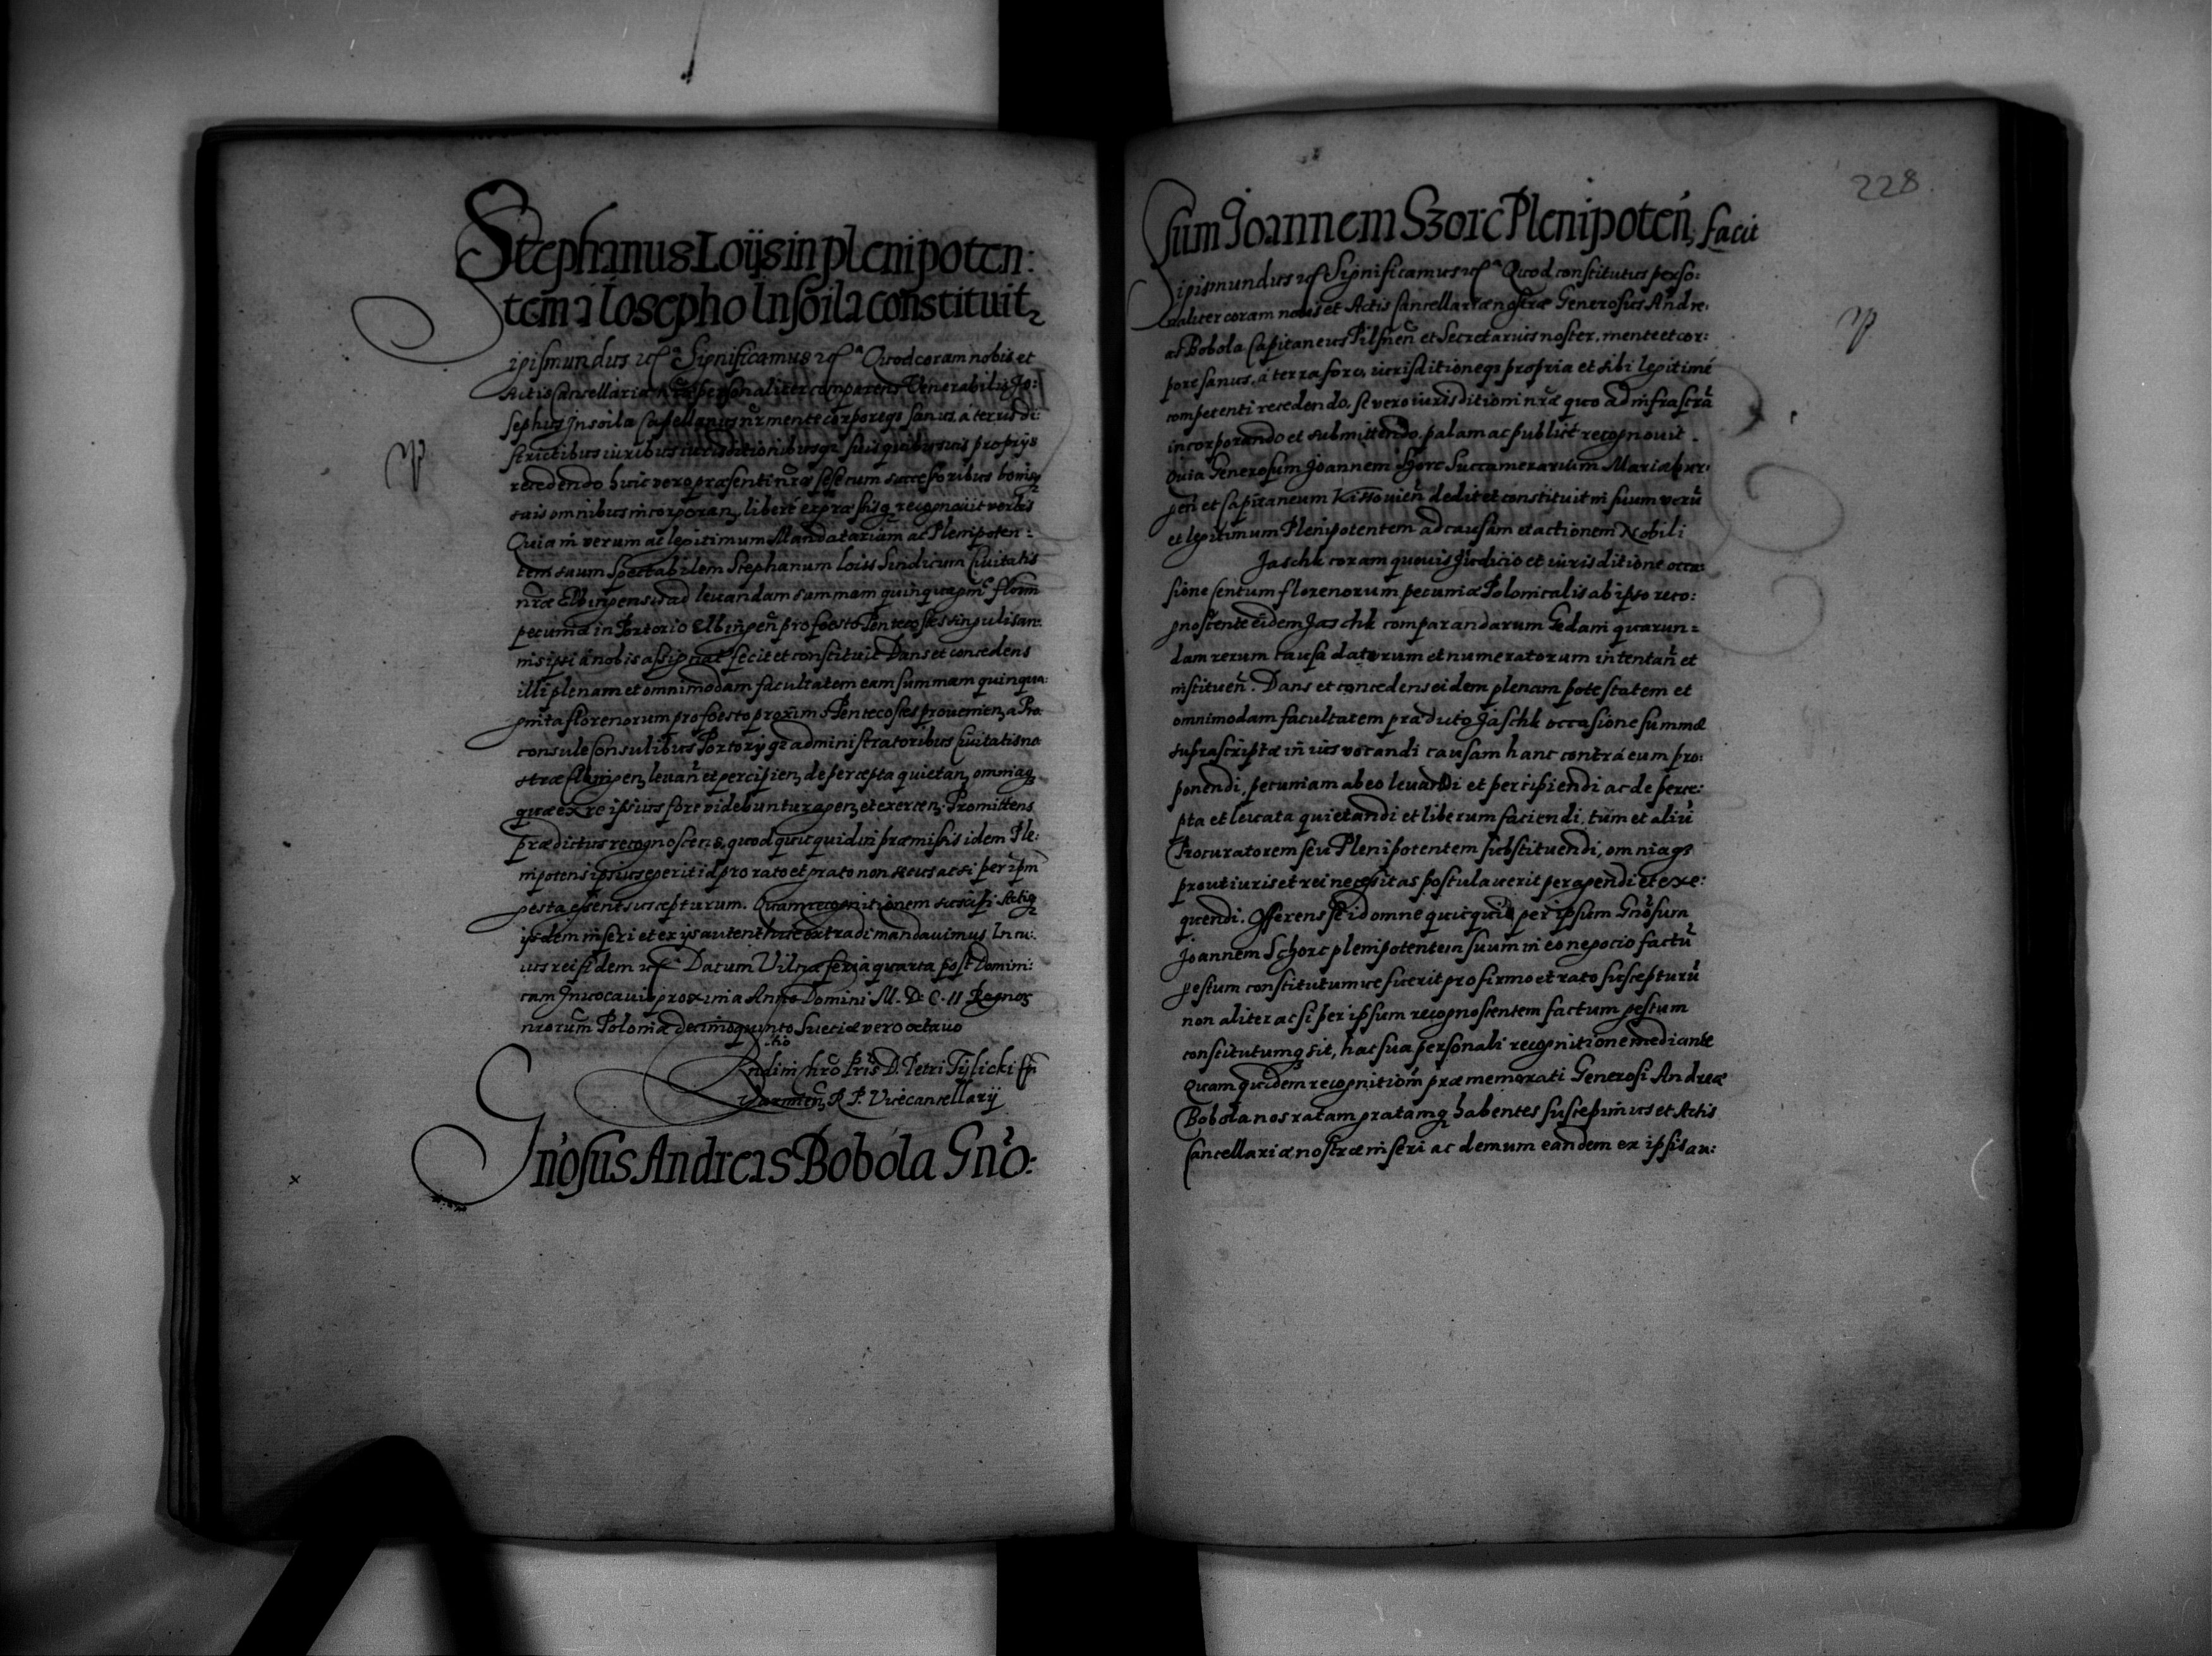 Stephanus Loijs in plenipoten:
tem a Iosepho Insoila constituit
igismundus etc. Significamus etc. Quod coram nobis et
Actis Cancellariæ nræ personaliter comparens Venerabilis Jo:
sephus Jnsoila Capellanus nr mente corporeq; sanus á terris di:
strictibus iuribus iurisditionibusq; suis quibusuis proprijs
recedendo huic vero præsenti nræ sese cum successoribus bonisq;
suis omnibus incorporan, liberé expressisq; recognouit verbis
Quia in verum ac legitimum Mandatarium ac Plenipoten:
tem suum Spectabilem Stephanum Loiss Sindicum Ciuitatis
nræ Elbingensis ad leuandam summam quinquagin florin
pecuniæ in Portorio Elbingen pro foesto Pentecostes singulis an:
nis ipsi á nobis assignat fecit et constituit Dans et concedens
illi plenam et omnimodam facultatem eam summam quinqua:
ginta florenorum pro foesto proxim Pentecostes prouenien, a Pro
consule Consulibus Portorijq; administratoribus Ciuitatis no
stræ Elbingen, leuan et percipien, de percepta quietan, omniaq;
quæ ex re ipsius fore videbuntur agen, et exercen, Promittens
prædictus recognoscens, quod quicquid in præmissis idem Ple:
nipotens ipsius egerit id pro rato et grato non secus ac si per ipm
gesta essent suscepturum. Quam recognitionem suscipi Actisq;
ijsdem inseri et ex ijs autenthice extradi mandauimus. In cu:
ius rei fidem etc. Datum Vilnæ feria quarta post Domini:
cam Jnuocauit proxima Anno Domini M. D. C. II Regnor
nrorum Poloniæ decimoquinto Sueciæ vero octauo
D. Petri Tylicki Epi
Varmien, R. P. Vicecancellarij
Gnosus Andreas Bobola Gno:
228
sum Joannem Szorc Plenipoten, facit
igismundus etc. Significamus etc. Quod constitutus perso:
naliter coram nobis et Actis Cancellariæ nostræ Generosus Andre:
as Bobola Capitaneus Pilsnen et Secretarius noster, mente et cor:
pore sanus, á terra foro, iurisditioneq; propria et sibi legitimé
competenti recedendo, se vero iurisditioni nræ quo ad infrascra
incorporando et submittendo, palam ac publice recognouit
Quia Generosum Joannem Szorc Succamerarium Mariæbur:
gen et Capitaneum Kissouien dedit et constituit in suum veru
et legitimum Plenipotentem ad causam et actionem Nobili
Jaschk coram quouis Judicio et iurisditione occa:
sione Centum florenorum pecuniæ Polonicalis ab ipso reco:
gnoscente eidem Jaschk comparandarum Gedani quarun:
dam rerum causa datorum et numeratorum intentan et
instituen. Dans et concedens eidem plenam potestatem et
omnimodam facultatem prædicto Jaschk occasione summæ
suprascriptæ in ius vocandi causam hanc contrá eum pro:
ponendi, pecuniam ab eo leuandi et percipiendi ac de perce:
pta et leuata quietandi et liberum faciendi, tum et aliu
Procuratorem seu Plenipotentem substituendi, omniaq;
prout iuris et rei necessitas postulauerit peragendi et exe:
quendi. Offerens se id omne quicquid per ipsum Gnosum
Joannem Schorc plenipotentem suum in eo negocio factu
gestum constitutumue fuerit pro firmo et rato suscepturu
non aliter ac si per ipsum recognoscentem factum gestum
constitutumq; sit, hac sua personali recognitione mediante
Quam quidem recognitiom præmemorati Generosi Andreæ
Bobola nos ratam gratamq; habentes suscepimus et Actis
Cancellariæ nostræ inseri ac demum eandem ex ipsis au: